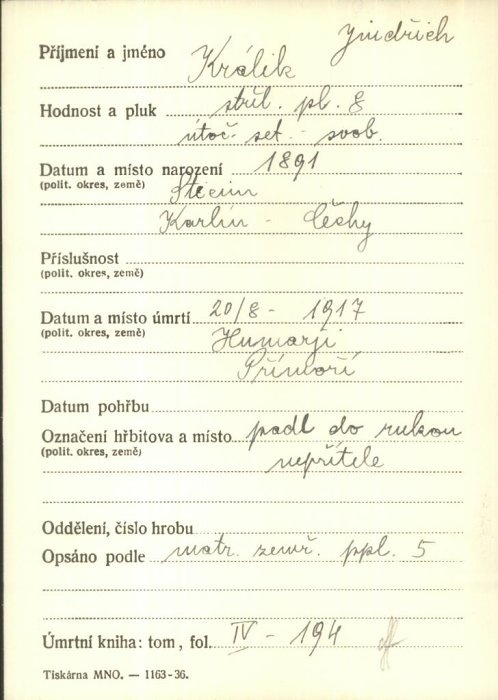 Jindřich
Příjmení a jméno Králik
Hodnost a pluk střel. pl. 8
útoč. set. - svob.
Datum a místo narození 1891
(polit. okres, země) Štěcim
Karlín - Čechy
Příslušnost
(polit. okres, země)
Datum a místo úmrtí 20/8 - 1917
(polit. okres, země) Humarji
Přímoří
Datum pohřbu
Označení hřbitova a místo padl do rukou
(polit. okres, země) nepřítele
Oddělení, číslo hrobu
Opsáno podle matr. zemř. ppl. 5
Úmrtní kniha: tom, fol. IV - 194
Tiskárna MNO. — 1163-36.